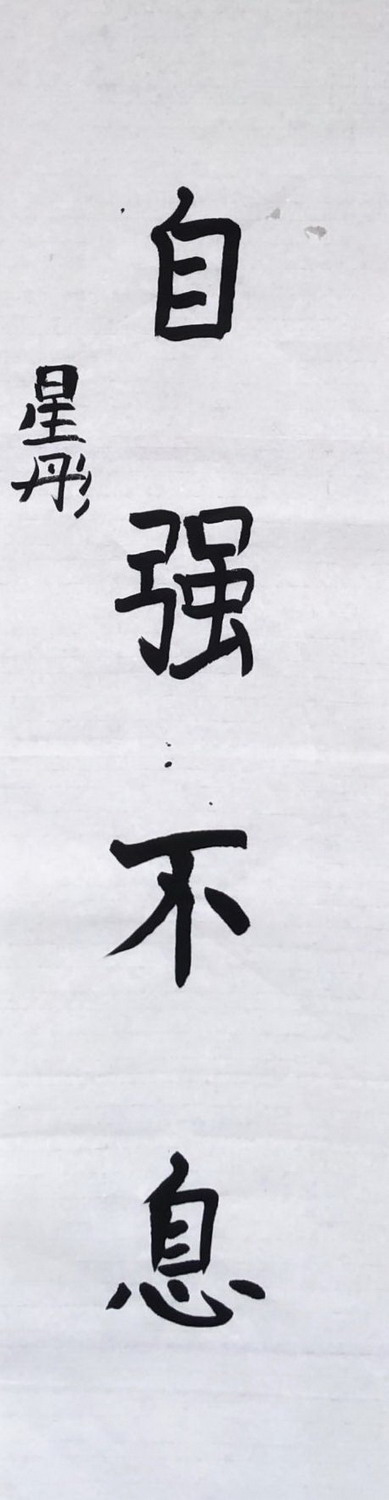 自强不息
星彤